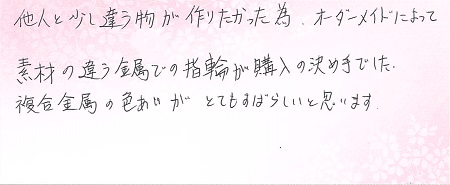 他人と少し違う物が作りたかった為、オーダーメイドによって
素材の違う金属での指輪が購入の決め手でした.
複合金属の色あいが とてもすばらしいと思います.